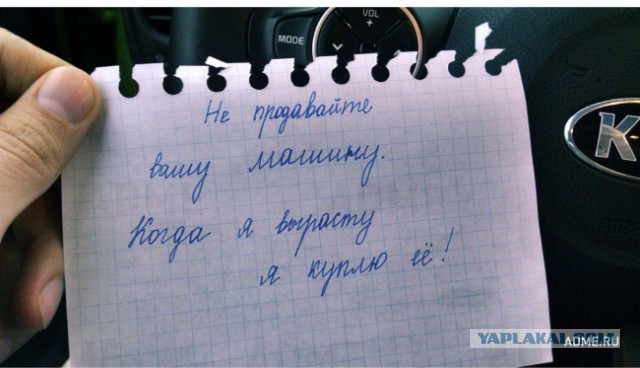 VOL
+
MODE
Не продавайте
вашу машину.
Когда я вырасту
я куплю её!
YAPLAKAL.COM
ADME.RU